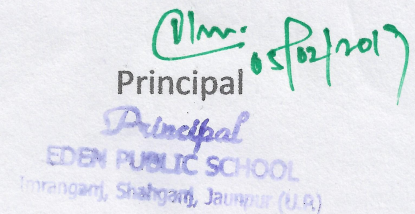 05/02/2019
Principal
Principal
EDEN PUBLIC SCHOOL
Imranganj, Shahganj, Jaunpur (U.P.)